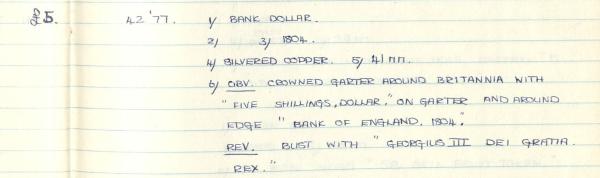 £5. 42'77. 1/ BANK DOLLAR.
2/ 3/ 1804.
4/ SILVERED COPPER. 5/ 41mm.
6/ OBV. CROWNED GARTER AROUND BRITANNIA WITH
"FIVE SHILLINGS, DOLLAR." ON GARTER AND AROUND
EDGE "BANK OF ENGLAND. 1804."
REV. BUST WITH "GEORGIUS III DEI GRATIA.
REX."